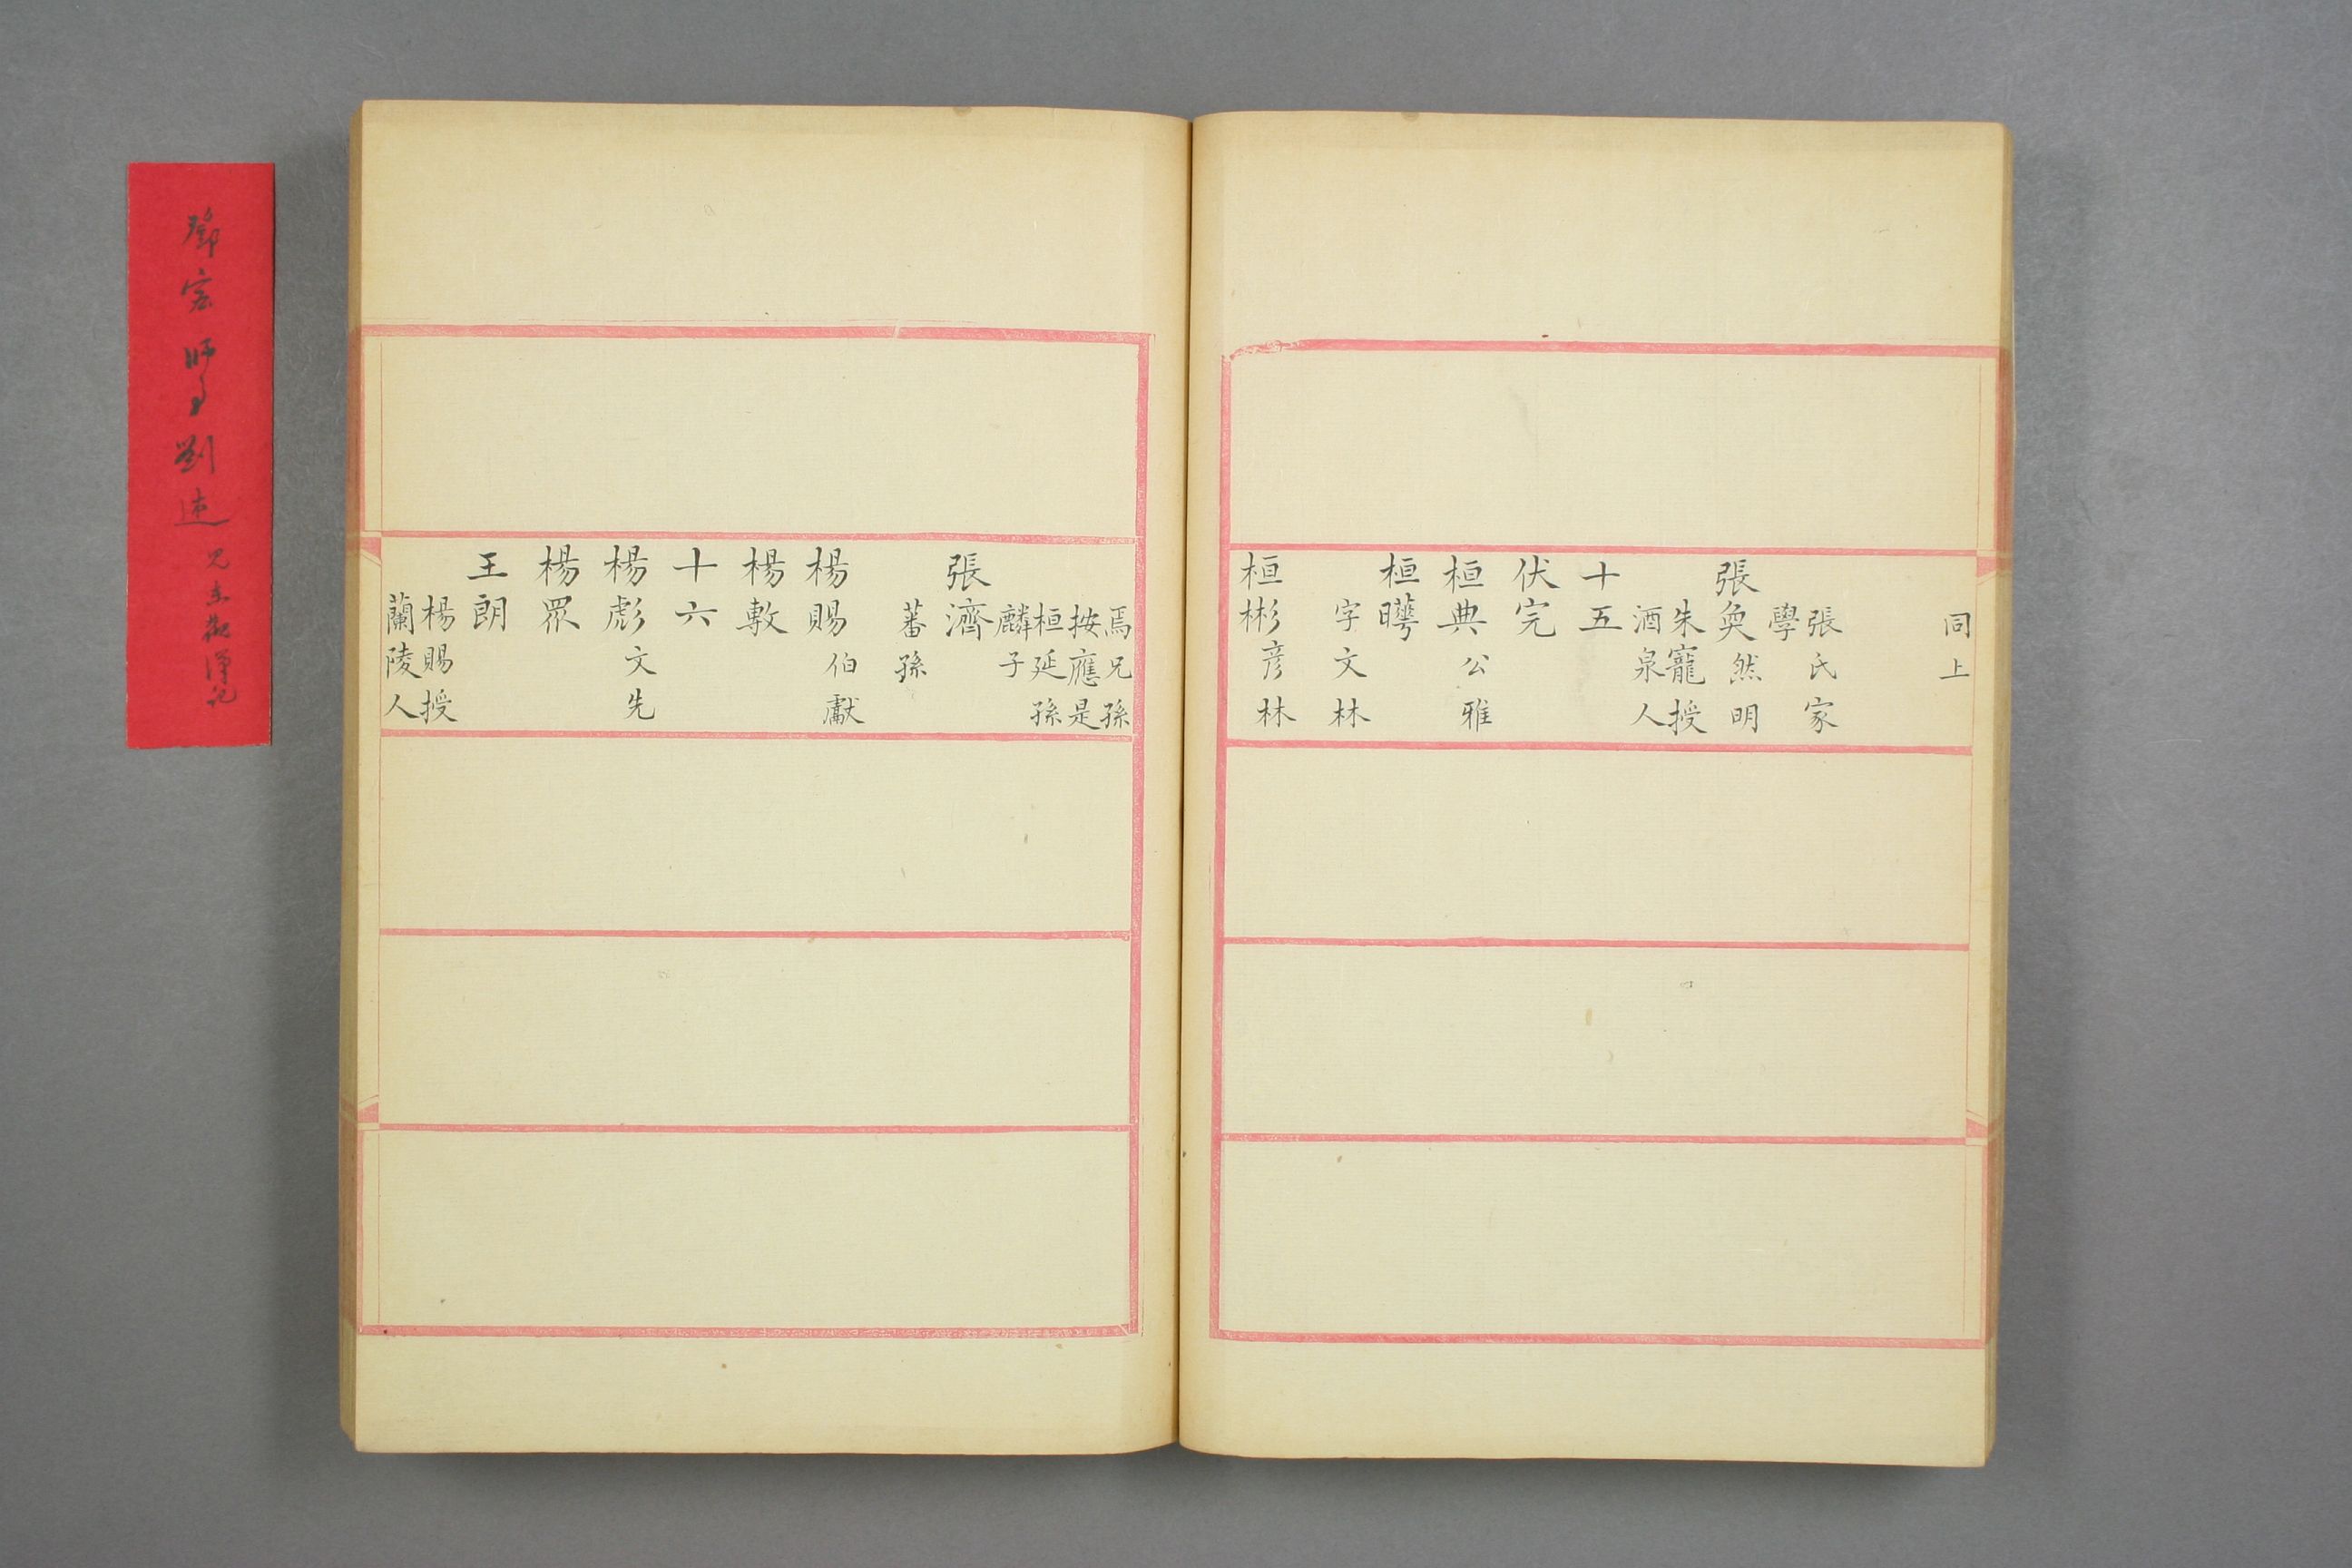 同上
張氏家
學
張奐然明
朱寵授
酒泉人
十五
伏完
桓典公雅
桓曄
字文林
桓彬彥林
焉兄孫
按應是
桓延孫
麟子
張濟
蕃孫
楊賜伯獻
楊敷
十六
楊彪文先
楊眾
王朗
楊賜授
蘭陵人
鄧宏師事劉述見東觀漢記